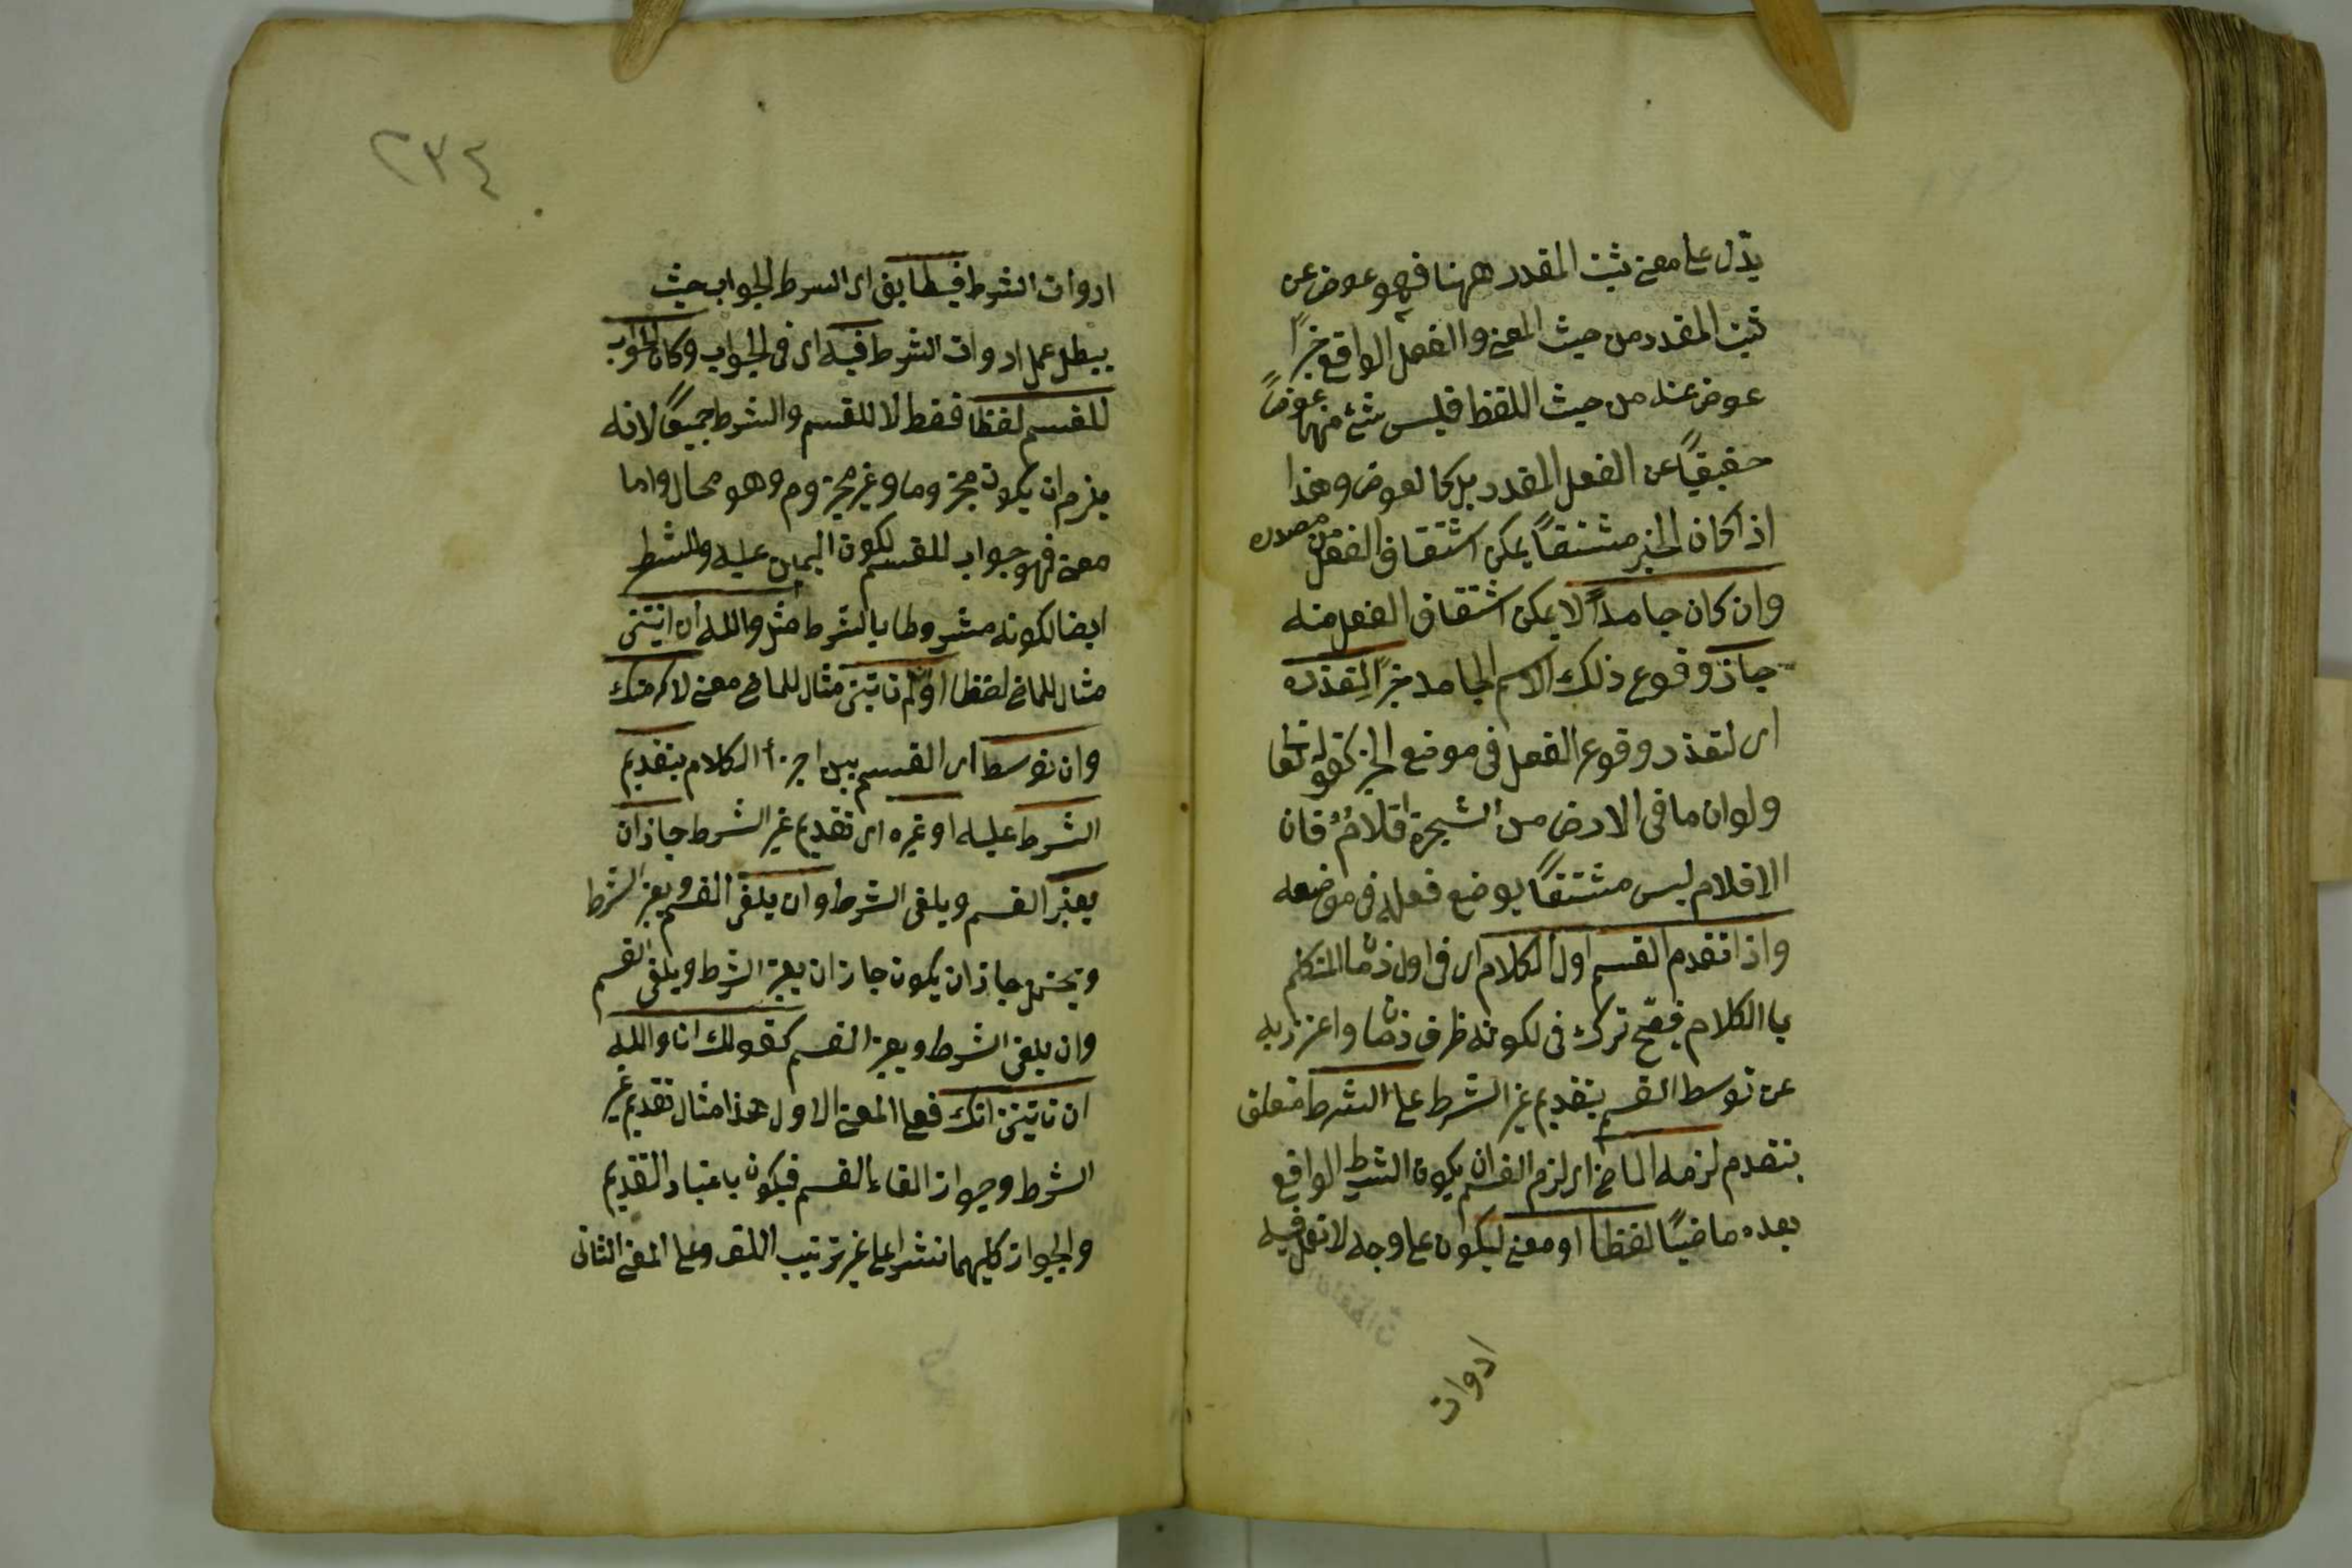 يدّل على معنى ثبت المقدر ههنا فهو عوض عن
ثبت المقدر من حيث المعنى والفعل الواقع خبرًا
عوض عنه من حيث اللفظ فليس شئ منهما عوضًا
حقيقيًا عن الفعل المقدر بل كالعوض وهذا
اذا كان الخبر مشتقًا يمكن اشتقاق الفعل من مصدره
وان كان جامدًا لا يمكن اشتقاق الفعل منه
جاز وقوع ذلك الاسم الجامد خبرًا لتعذره
اى لتعذر وقوع الفعل فى موضع الخبر كقوله تعا
ولو ان ما فى الارض من الشجرة اقلامٌ فان
الاقلام ليس مشتقًا يوضع فعله فى موضعه
واذا تقدم القسم اول الكلام اى فى اول زمان المتكلم
بالكلام فصّح ترك فى لكونه ظرف زمان واعتزز به
عن توسط القسم بتقديم غير الشرط على الشرط متعلق
بتقدم لزمه الماضى اى لزم القسم ان يكون الشرط الواقع
بعده ماضيًا لفظا او معنى ليكون على وجه لا تعمل فيه
ادوات
٢٣٤
ادوات الشرط فيطابق اى الشرط الجواب حيث
يبطل عمل ادوات الشرط فيه اى فى الجواب وكان الجواب
للقسم لفظا فقط لا للقسم والشرط جميعًا لانه
يلزم ان يكون مجزوما وغير مجزوم وهو محال واما
معنى فهو جواب للقسم لكون اليمين عليه والشرط
ايضا لكونه مشروطا بالشرط مثل والله ان اتيتنى
مثال للماضى لفظا او ان لم تاتينى مثال للماضى معنى لاكرمتك
وان توسط اى القسم بين اجزأ الكلام بتقديم
الشرط عليه او غيره اى تقديم غير الشرط جاز ان
يعتبر القسم ويلغى الشرط وان يلغى القسم ويعتبر الشرط
ويحتمل جاز ان يكون جاز ان يعتبر الشرط ويلغى القسم
وان يلغى الشرط ويعتبر القسم كقولك انا والله
ان تاتينى اتك فعلى المعنى الاول هذا مثال تقديم غير
الشرط وجواز القاء القسم فيكون باعتبار التقديم
والجواز كليهما نشرا على غير ترتيب اللف وعلى المعنى الثانى